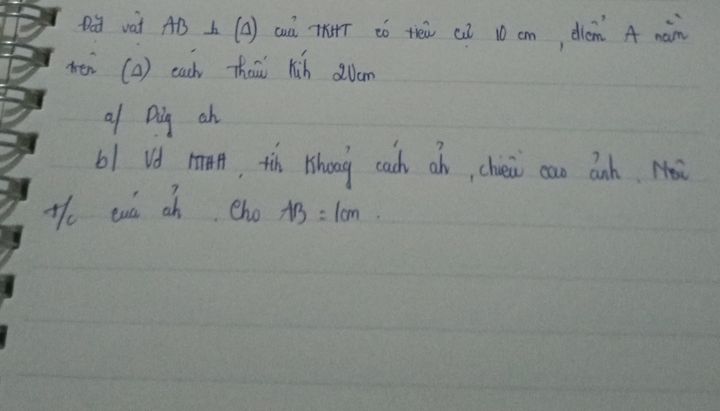 Đặt vật AB ⊥ (Δ) của TKHT có tiêu cự 10 cm, điểm A nằm
trên (Δ) cách thấu kíh 20cm
a/ Dựg ảh
b/ Vd, tíh khoảg cách ảh, chiều cao ảnh. Nêu
t/c của ảh. Cho AB = 1cm.